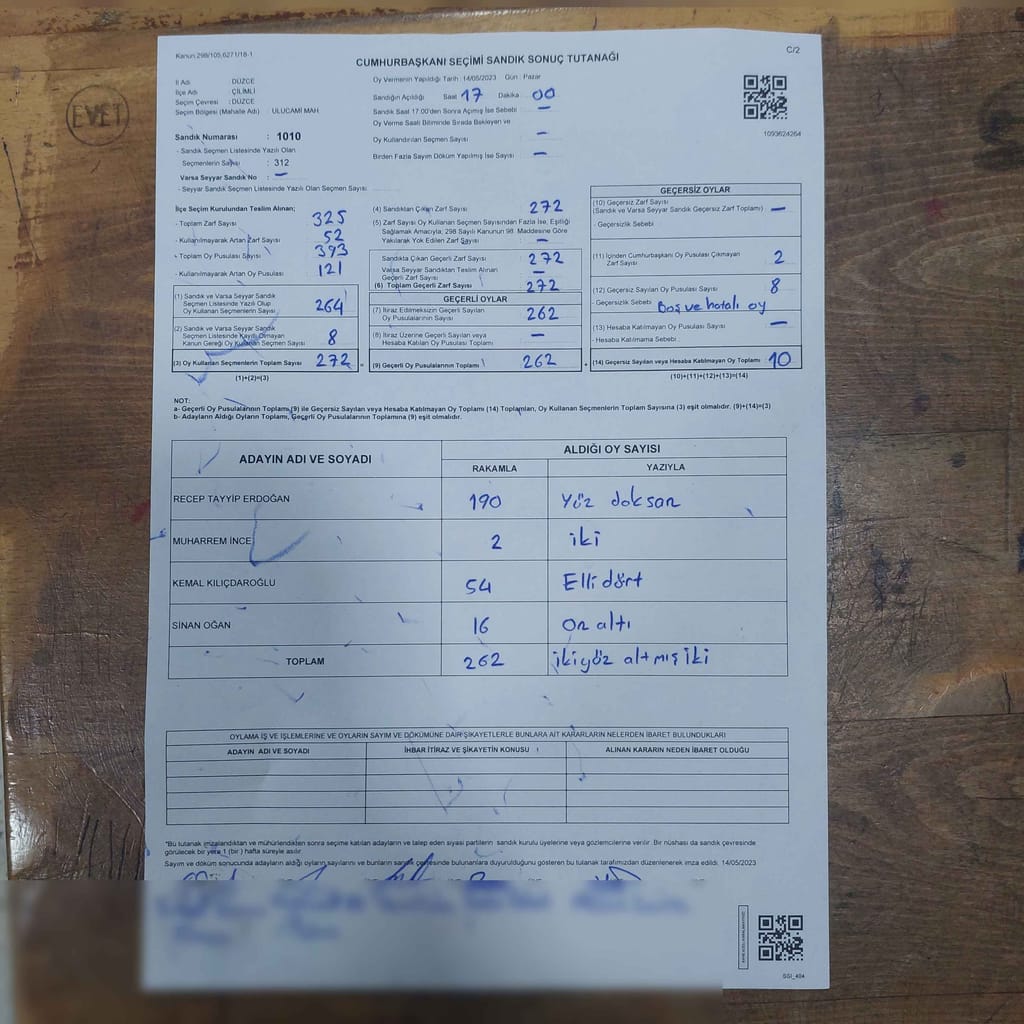 EVET
Kanun 298/105,6271/18-1
C/2
CUMHURBAŞKANI SEÇİMİ SANDIK SONUÇ TUTANAĞI
İl Adı : DÜZCE
İlçe Adı : ÇİLİMLİ
Seçim Çevresi : DÜZCE
Seçim Bölgesi (Mahalle Adı) : ULUCAMİ MAH
Sandık Numarası : 1010
- Sandık Seçmen Listesinde Yazılı Olan
Seçmenlerin Sayısı : 312
Varsa Seyyar Sandık No : —
- Seyyar Sandık Seçmen Listesinde Yazılı Olan Seçmen Sayısı
Oy Vermenin Yapıldığı Tarih : 14/05/2023 Gün : Pazar
Sandığın Açıldığı Saat 17 Dakika 00
Sandık Saat 17.00'den Sonra Açılmış İse Sebebi —
Oy Verme Saati Bitiminde Sırada Bekleyen ve
Oy Kullandırılan Seçmen Sayısı —
Birden Fazla Sayım Döküm Yapılmış İse Sayısı —
1093624264
İlçe Seçim Kurulundan Teslim Alınan;
- Toplam Zarf Sayısı 325
- Kullanılmayarak Artan Zarf Sayısı 52
- Toplam Oy Pusulası Sayısı 393
- Kullanılmayarak Artan Oy Pusulası 121
(1) Sandık ve Varsa Seyyar Sandık
Seçmen Listesinde Yazılı Olup
Oy Kullanan Seçmenlerin Sayısı 264
(2) Sandık ve Varsa Seyyar Sandık
Seçmen Listesinde Kayıtlı Olmayan
Kanun Gereği Oy Kullanan Seçmen Sayısı 8
(3) Oy Kullanan Seçmenlerin Toplam Sayısı 272 =
(1)+(2)=(3)
(4) Sandıktan Çıkan Zarf Sayısı 272
(5) Zarf Sayısı Oy Kullanan Seçmen Sayısından Fazla İse, Eşitliği
Sağlamak Amacıyla; 298 Sayılı Kanunun 98. Maddesine Göre
Yakılarak Yok Edilen Zarf Sayısı —
Sandıkta Çıkan Geçerli Zarf Sayısı 272
Varsa Seyyar Sandıktan Teslim Alınan
Geçerli Zarf Sayısı —
(6) Toplam Geçerli Zarf Sayısı 272
GEÇERLİ OYLAR
(7) İtiraz Edilmeksizin Geçerli Sayılan
Oy Pusulalarının Sayısı 262
(8) İtiraz Üzerine Geçerli Sayılan veya
Hesaba Katılan Oy Pusulası Toplamı —
(9) Geçerli Oy Pusulalarının Toplamı 262 +
GEÇERSİZ OYLAR
(10) Geçersiz Zarf Sayısı
(Sandık ve Varsa Seyyar Sandık Geçersiz Zarf Toplamı) —
- Geçersizlik Sebebi
(11) İçinden Cumhurbaşkanı Oy Pusulası Çıkmayan
Zarf Sayısı 2
(12) Geçersiz Sayılan Oy Pusulası Sayısı 8
- Geçersizlik Sebebi Boş ve hatalı oy
(13) Hesaba Katılmayan Oy Pusulası Sayısı —
- Hesaba Katılmama Sebebi
(14) Geçersiz Sayılan veya Hesaba Katılmayan Oy Toplamı 10
(10)+(11)+(12)+(13)=(14)
NOT:
a- Geçerli Oy Pusulalarının Toplamı (9) ile Geçersiz Sayılan veya Hesaba Katılmayan Oy Toplamı (14) Toplamları, Oy Kullanan Seçmenlerin Toplam Sayısına (3) eşit olmalıdır. (9)+(14)=(3)
b- Adayların Aldığı Oyların Toplamı, Geçerli Oy Pusulalarının Toplamına (9) eşit olmalıdır.
ADAYIN ADI VE SOYADI ALDIĞI OY SAYISI
RAKAMLA YAZIYLA
RECEP TAYYİP ERDOĞAN 190 Yüz doksan
MUHARREM İNCE 2 iki
KEMAL KILIÇDAROĞLU 54 Elli dört
SİNAN OĞAN 16 On altı
TOPLAM 262 ikiyüz altmış iki
OYLAMA İŞ VE İŞLEMLERİNE VE OYLARIN SAYIM VE DÖKÜMÜNE DAİR ŞİKAYETLERLE BUNLARA AİT KARARLARIN NELERDEN İBARET BULUNDUKLARI
ADAYIN ADI VE SOYADI İHBAR İTİRAZ VE ŞİKAYETİN KONUSU ALINAN KARARIN NEDEN İBARET OLDUĞU
*Bu tutanak imzalandıktan ve mühürlendikten sonra seçime katılan adayların ve talep eden siyasi partilerin sandık kurulu üyelerine veya gözlemcilerine verilir. Bir nüshası da sandık çevresinde
görülecek bir yere 1 (bir) hafta süreyle asılır.
Sayım ve döküm sonucunda adayların aldığı oyların sayılarını ve bunların sandık çevresinde bulunanlara duyurulduğunu gösteren bu tutanak tarafımızdan düzenlenerek imza edildi. 14/05/2023
SSI_404